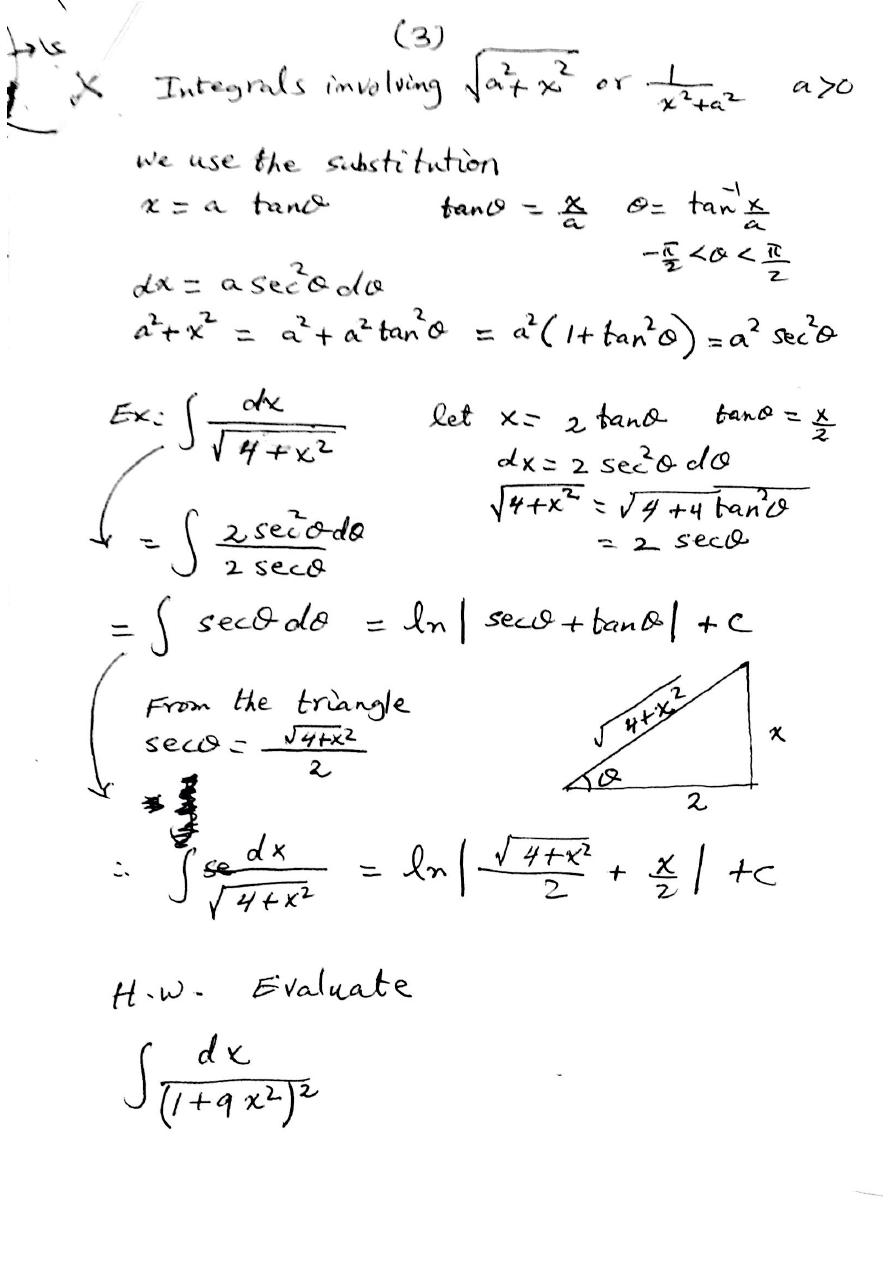 (3)
X Integrals involving √(a²+x²) or 1/(x²+a²) a>0
we use the substitution
x = a tanθ tanθ = x/a θ = tan⁻¹ x/a
-π/2 <θ< π/2
dx = a sec²θ dθ
a²+x² = a² + a² tan²θ = a²(1+tan²θ) = a² sec²θ
Ex: ∫ dx/√(4+x²) let x = 2 tanθ tanθ = x/2
dx = 2 sec²θ dθ
√(4+x²) = √(4+4tan²θ)
= 2 secθ
= ∫ 2 sec²θ dθ/2 secθ
= ∫ secθ dθ = ln | secθ + tanθ | + c
From the triangle
secθ = √(4+x²)/2
√(4+x²)
x
θ
2
∴ ∫ dx/√(4+x²) = ln | √(4+x²)/2 + x/2 | + c
H.W. Evaluate
∫ dx/(1+9x²)²